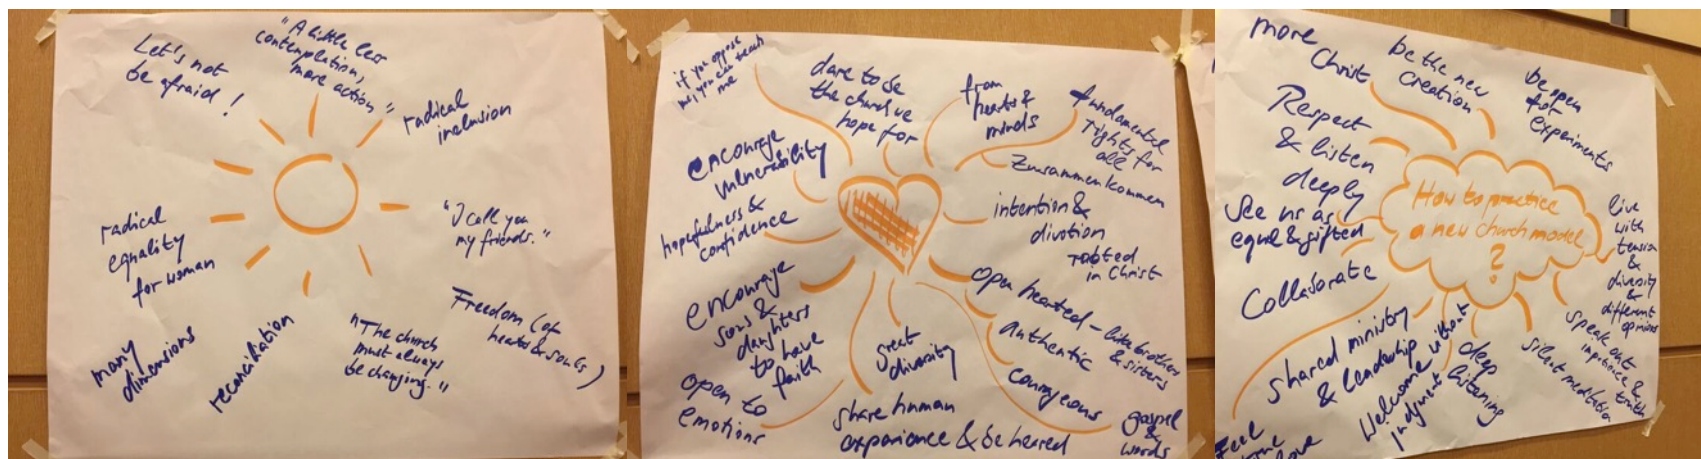 Let's not
be afraid!
"A little less
contemplation,
more action"
radical
inclusion
"I call you
my friends."
Freedom (of
hearts & souls)
"The church
must always
be changing."
reconciliation
many
dimensions
radical
equality
for woman
if you oppose
me, you can teach
me
dare to be
the church we
hope for
from
hearts &
minds
fundamental
rights for
all
Zusammenkommen
intention &
divotion
rooted
in Christ
open hearted - like brothers
& sisters
authentic
courageous
gospel
&
words
great
diversity
share human
experience & be heared
open to
emotions
encourage
sons &
daughters
to have
faith
hopefulness &
confidence
encourage
vulnerability
How to practice
a new church model
?
more
Christ
be the new
creation
be open
for
experiments
live
with
tension
&
diversity
&
different
opinions
speak out
&
truth
silent meditation
deep
listening
Welcome without
judgment
shared ministry
& leadership
Feel
Collaborate
See us as
equal & gifted
Respect
& listen
deeply